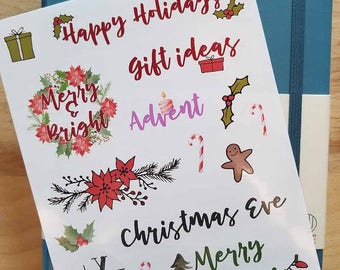 Happy Holidays
Gift ideas
Merry
&
Bright
Advent
Christmas Eve
Merry